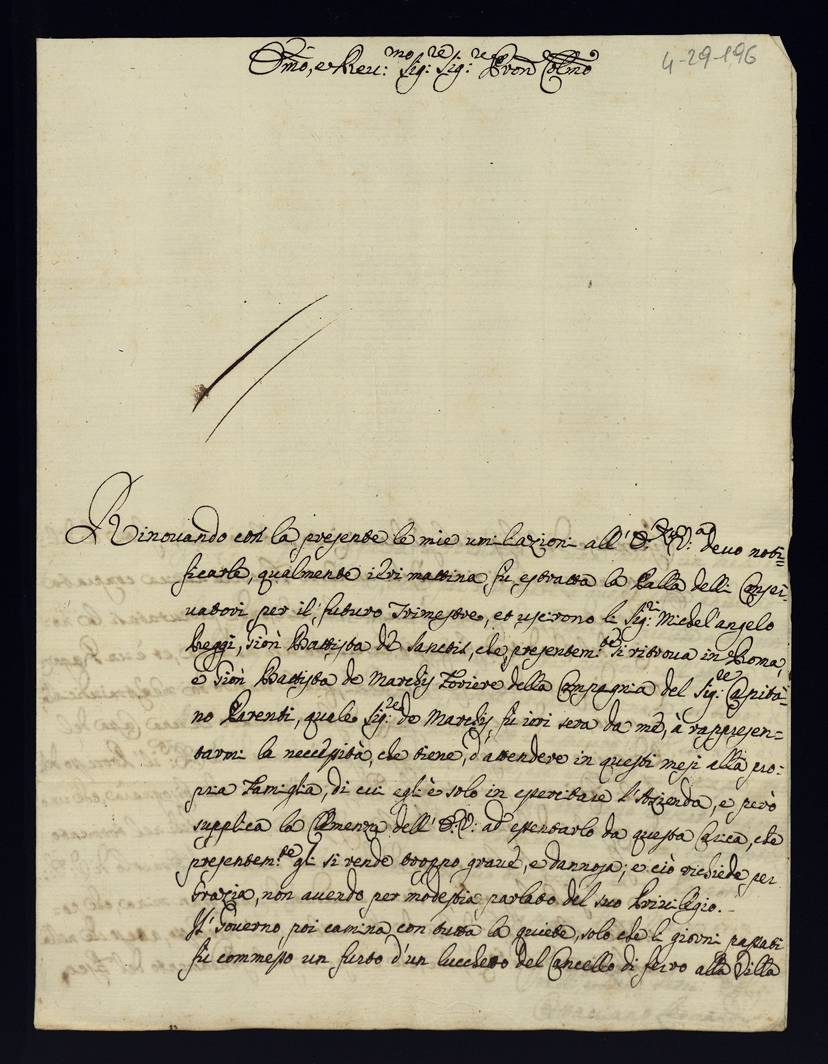 Emo, e Reu:mo Sig:re Sig:re Pron Colmo
4-29-196
Rinouando con la presente le mie umiliazioni all' E. V:a deuo noti=
ficarle, qualmente ieri mattina fu estratta la Palla delli Conser=
uatori per il futuro Trimestre, et uscirono li Sig:ri Michel'angelo
Reggi, Gion Battista de Sanctis, che presentem:te si ritroua in Roma,
e Gion Battista de Marchis Foriere della Compagnia del Sig:re Capità=
no Parenti, quale Sig:re de Marchis fu ieri sera da me, à rappresen=
tarmi la necessità, che tiene, d'attendere in questi mesi alla pro=
pria Famiglia, di cui egli è solo in esercitare l'Azienda, e però
supplica la Clemenza dell' E. V: ad esentarlo da questa Carica, che
presentem:te gli si rende troppo graue, e dannosa; e ciò richiede per
Grazia, non auendo per modestia parlato del suo Priuilegio.
Il Gouerno poi camina con tutta la quiete, solo che li giorni passati
fu commesso un furto d'un lucchetto del Cancello di ferro alla Villa